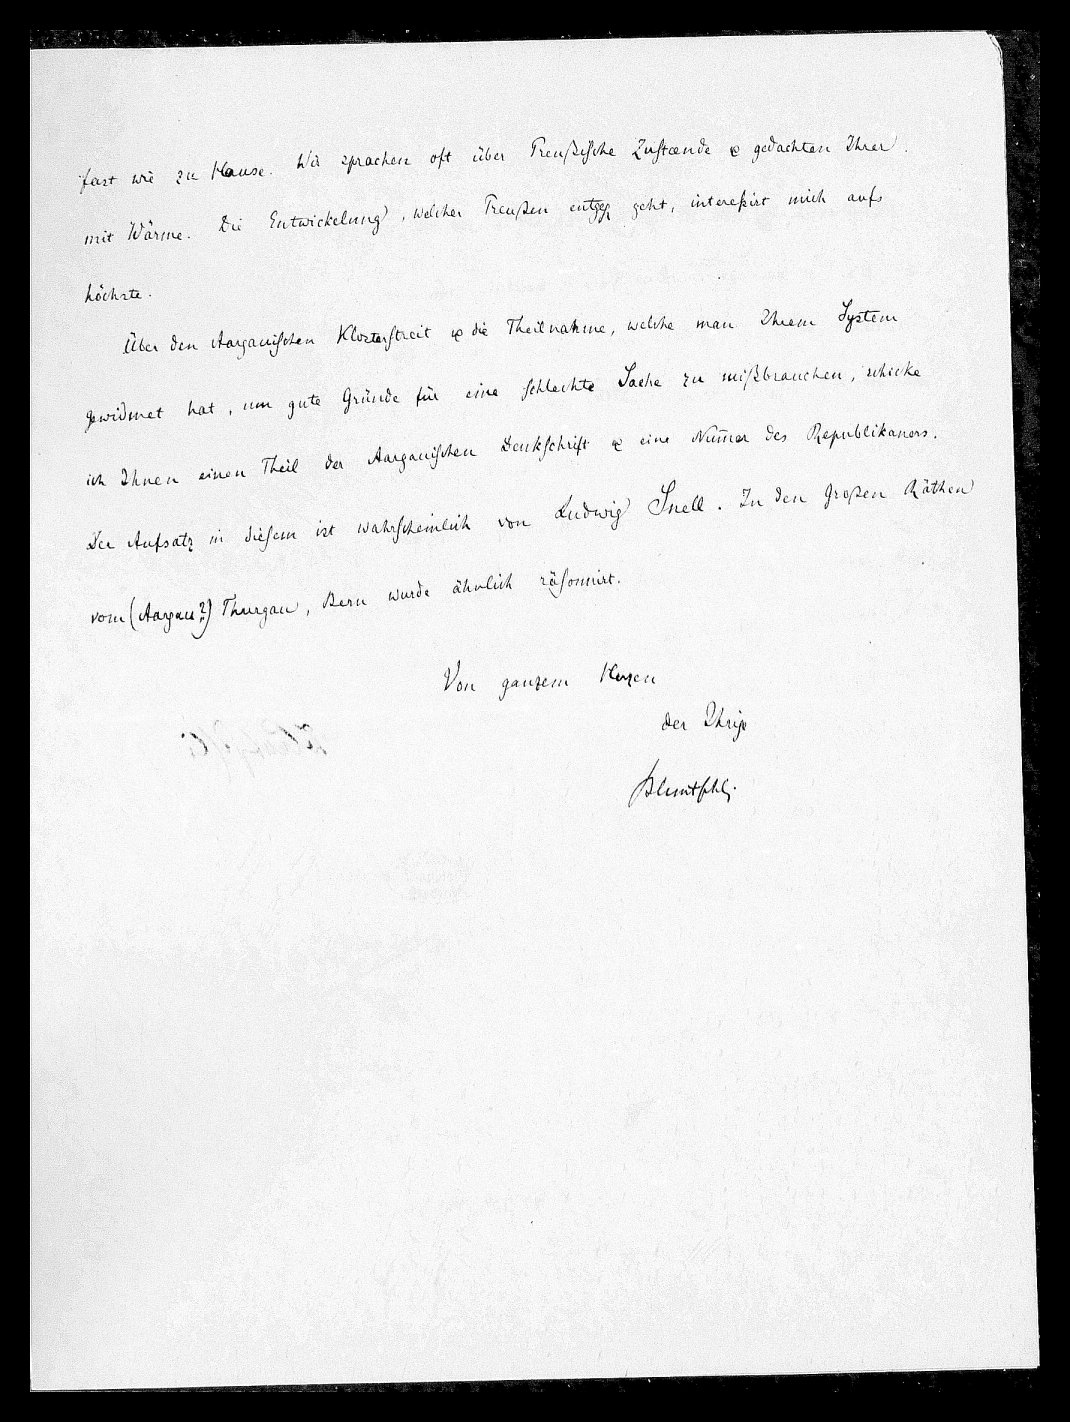 fast wie zu Hause. Wir sprachen oft über Preußische Zustænde & gedachten Ihrer
mit Wärme. Die Entwickelung, welcher Preußen entgeg geht, intereßirt mich aufs
höchste.
Über den Aargauischen Klosterstreit & die Theilnahme, welche man Ihrem System
gewidmet hat, um gute Gründe für eine schlechte Sache zu mißbrauchen, schicke
ich Ihnen einen Theil der Aargauischen Denkschrift & eine Num̄er des Republikaners.
Der Aufsatz in diesem ist wahrscheinlich von Ludwig Snell. In den großen Räthen
vom (Aargau?) Thurgau, Bern wurde ähnlich räsonnirt.
Von ganzem Herzen
der Ihrige
Bluntschli.